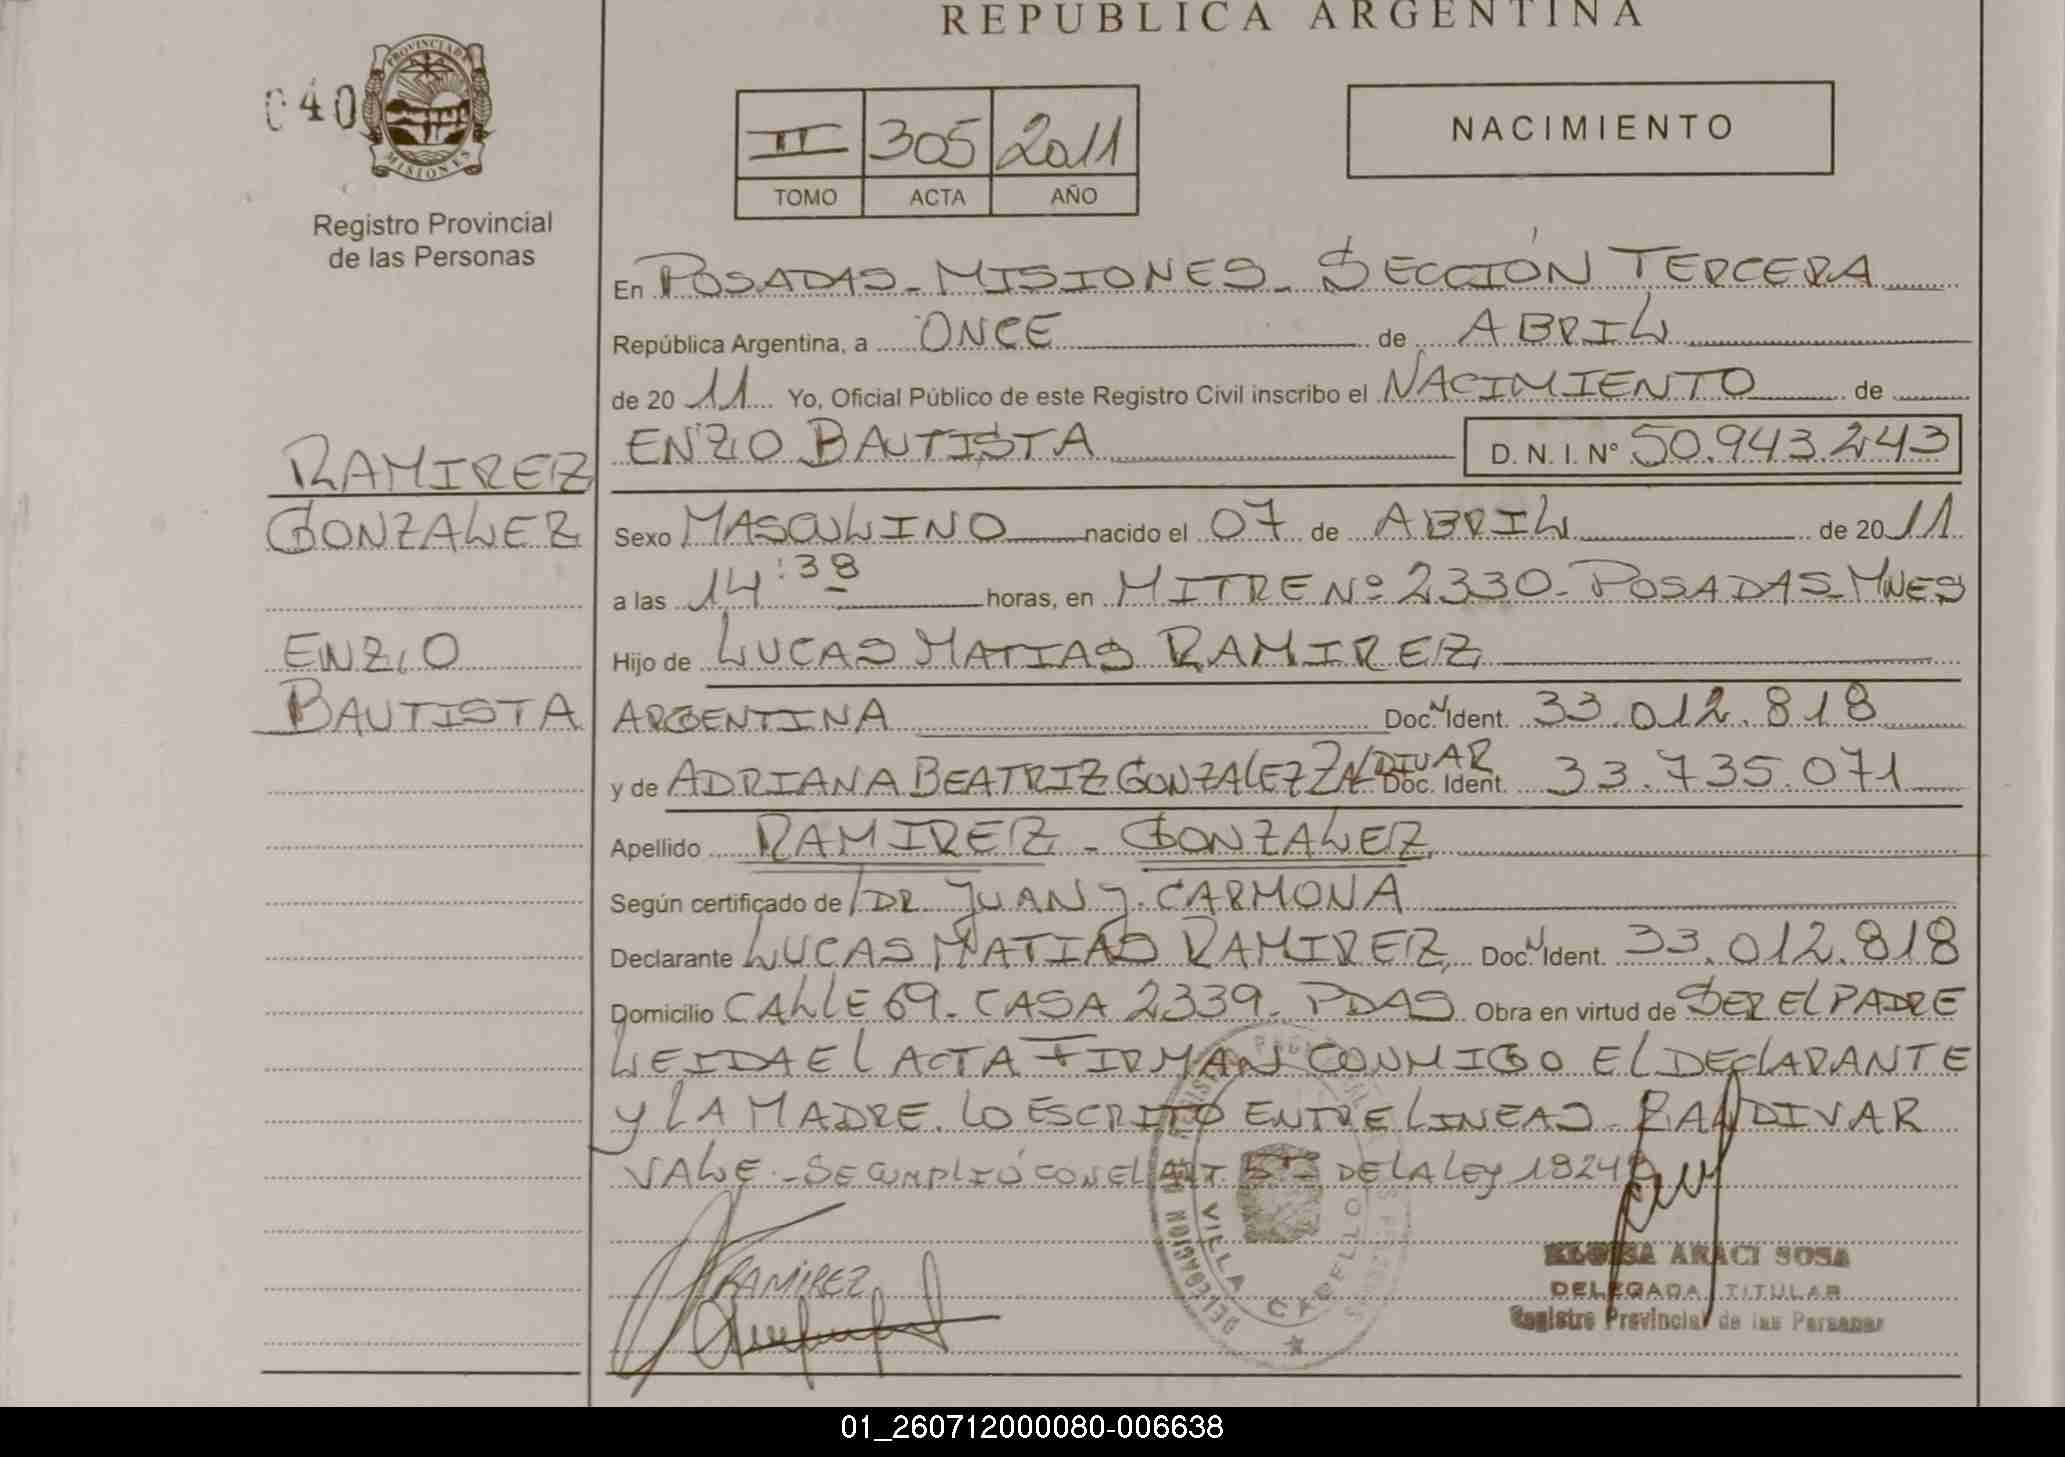 REPUBLICA ARGENTINA
040
PROVINCIA DE
MISIONES
Registro Provincial
de las Personas
II 305 2011
TOMO ACTA AÑO
NACIMIENTO
En POSADAS - MISIONES - SECCIÓN TERCERA
República Argentina, a ONCE de ABRIL
de 2011 Yo, Oficial Público de este Registro Civil inscribo el NACIMIENTO de
ENZO BAUTISTA D. N. I. Nº 50.943.243
RAMIREZ
GONZALEZ
ENZO
BAUTISTA
Sexo MASCULINO nacido el 07 de ABRIL de 2011
a las 14:38 horas, en MITRE Nº 2330 - POSADAS - MNES
Hijo de LUCAS MATIAS RAMIREZ
ARGENTINA Doc. Ident. 33.012.818
y de ADRIANA BEATRIZ GONZALEZ ZALDIVAR Doc. Ident. 33.735.071
Apellido RAMIREZ - GONZALEZ
Según certificado de DR. JUAN J. CARMONA
Declarante LUCAS MATIAS RAMIREZ Doc. Ident. 33.012.818
Domicilio CALLE 69 - CASA 2339 - PDAS Obra en virtud de SER EL PADRE
LEIDA EL ACTA FIRMAN CONMIGO EL DECLARANTE
Y LA MADRE. LO ESCRITO ENTRE LINEAS ZALDIVAR
VALE - SE CUMPLIÓ CON EL ART. 5to DE LA LEY 18248
RAMIREZ
DELEGACION
VILLA CABELLO
ELOISA ARACI SOSA
DELEGADA TITULAR
Registro Provincial de las Personas
01_260712000080-006638